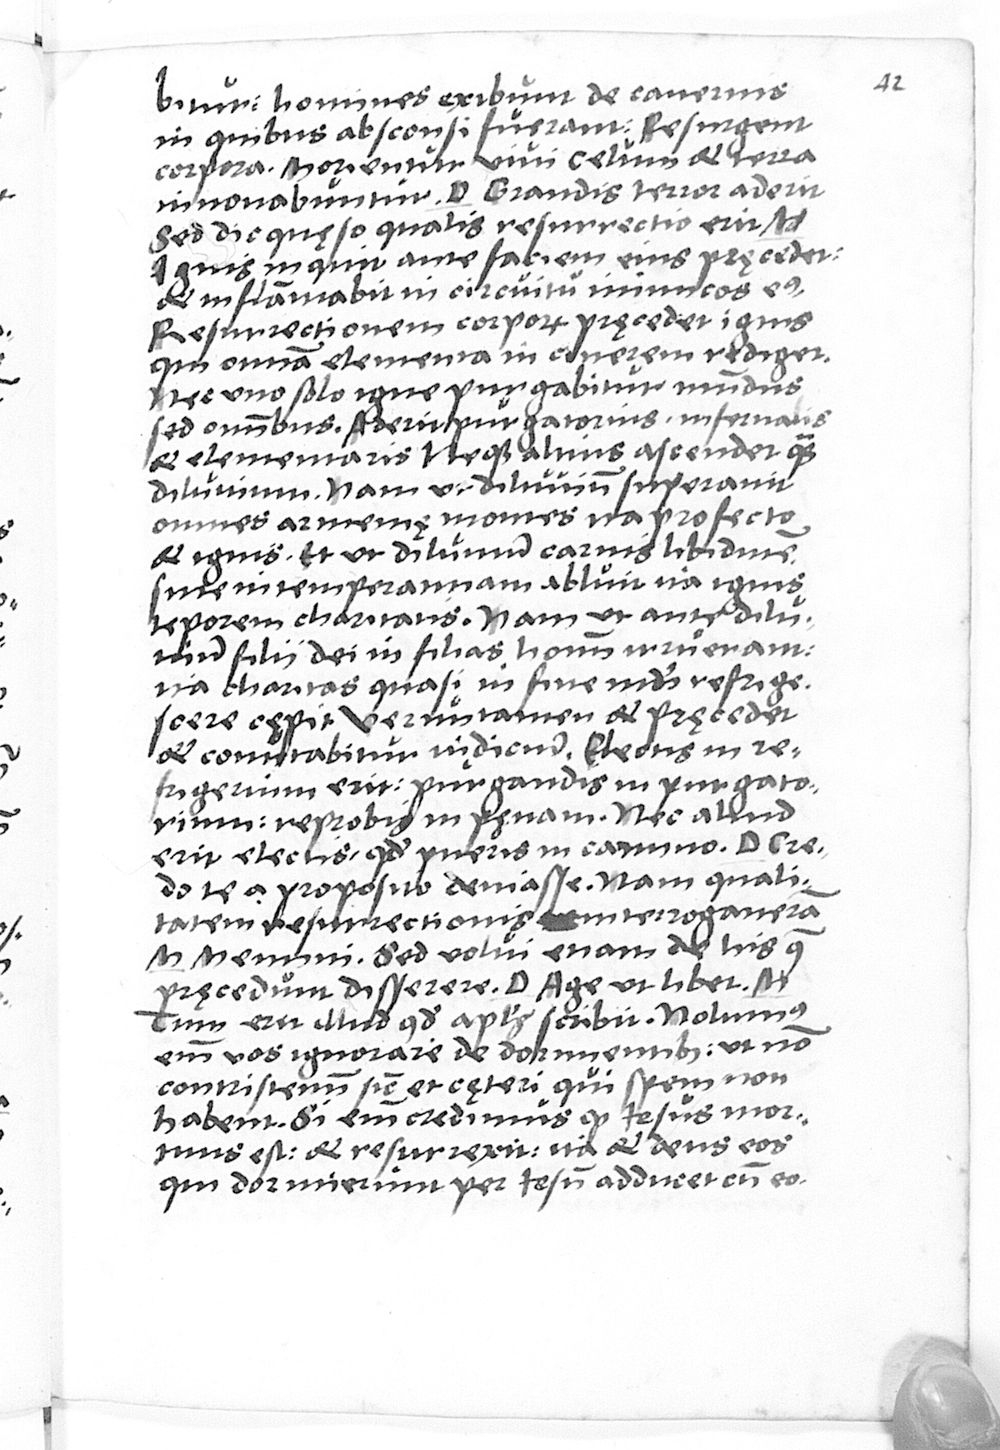 42
bitur: homines exibunt de cauernis
in quibus absconsi fuerant: Resurgent
corpora. Morientur viui Celum & terra
innouabuntur. D Grandis terror aderit
Sed dic quęso qualis resurrectio erit M
Ignis inquit ante faciem eius pręcedet:
& inflāmabit in circuitu inimicos eꝰ.
Resurrectionem corporꝝ pręcedet ignis
qui omnīa elementa in cinerem rediget.
Nec vno solo igne purgabitur mūdus
sed omībus. Aderit purgatorius, infernalis
& elementaris Neqꝫ altius ascendet qꝫ̄
diluuium. Nam vt diluuiū superauit
omnes armenię montes ita profecto
& ignis. Et vt diluuiū carnis libidinē
siue intemperantiam abluit ita ignis
teporem charitatis. Nam vt ante dilu-
uiū filij dei in filias homī irruerant:
ita charitas quasi in fine mūdi refrige-
scere cępit Verūtamen & pręcedet
& comitabitur iudiciū. Electis in re-
frigerium erit: purgandis in purgato-
rium: reprobis in pęnam. Nec aliud
erit electis, qđ pueris in camino. D Cre-
do te a proposito deuiasse. Nam quali-
tatem resurrectionis interrogauerā
M Memini. Sed volui etiam de his q̄
pręcedunt disserere. D Age vt libet. M
Tum erit illud qđ apl's scribit. Nolumꝰ
em̄ vos ignorare de dormientibꝫ: vt nō
contristemī sic̄ et cęteri qui spem non
habent. Si em̄ credimus ꝙ Iesus mor-
tuus est: & resurrexit: ita & deus eos
qui dormierunt per Iesū adducet cū eo.